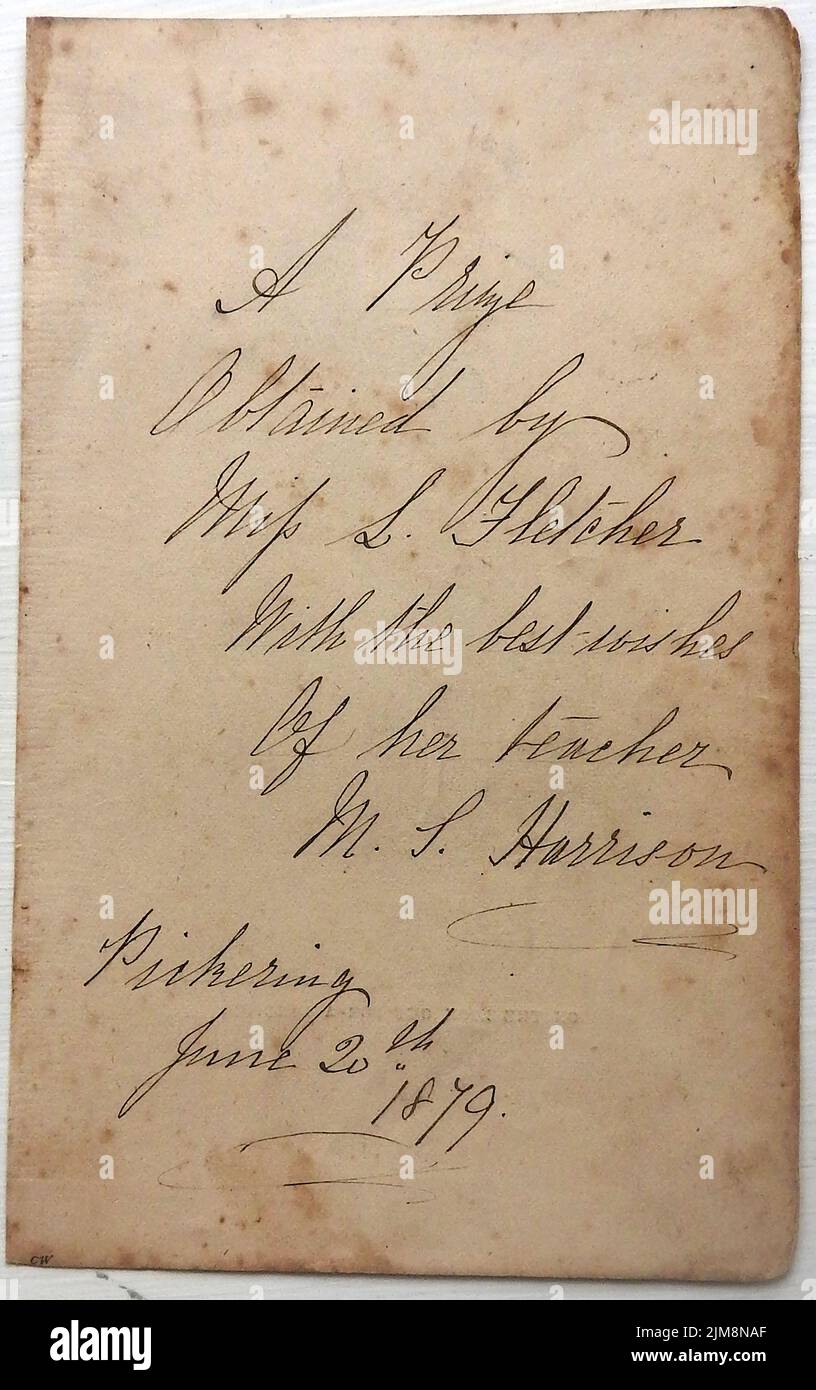 A Prize
Obtained by
Miſs L. Fletcher
With the best wishes
Of her teacher
M. S. Harrison
Pickering
June 20th
1879.
CW
alamy
alamy
alamy
alamy
Image ID: 2JM8NAF
www.alamy.com